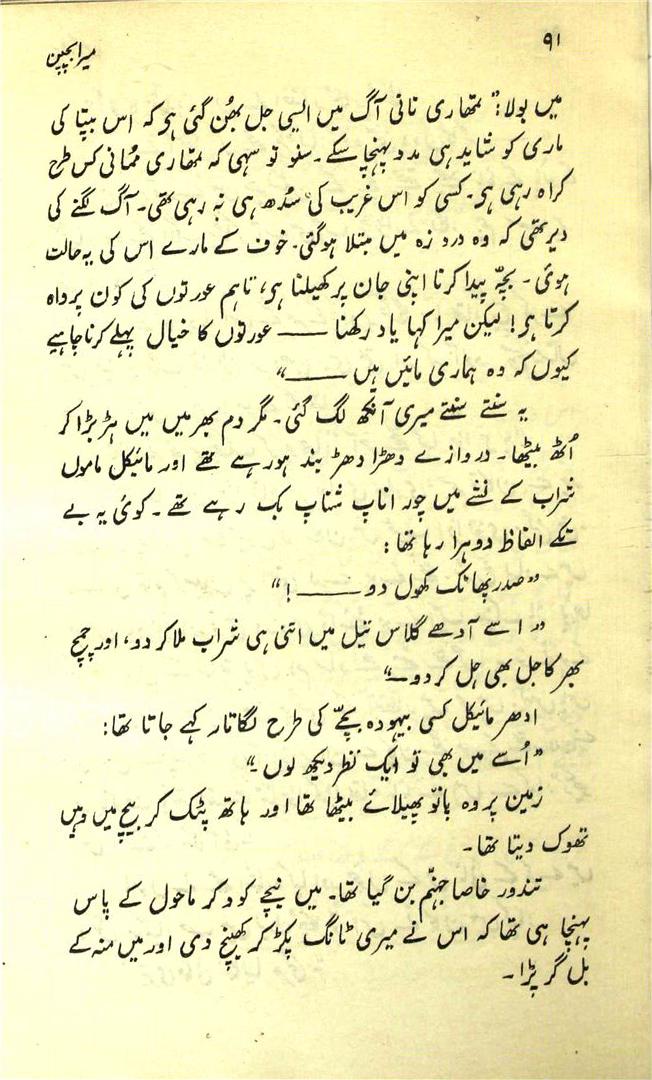 ۹۱
میرا بچپن
میں بولا: "تمھاری نانی آگ میں ایسی جل بھُن گئی ہو کہ اس بپتا کی
ماری کو شاید ہی مدد پہنچا سکے۔ سنو تو سہی کہ تمھاری ممُانی کس طرح
کراہ رہی ہو۔ کسی کو اس غریب کی سُدھ ہی نہ رہی تھی۔ آگ لگنے کی
دیر تھی کہ وہ درد زہ میں مبتلا ہوگئی۔ خوف کے مارے اس کی یہ حالت
ہوئی۔ بچّہ پیدا کرنا اپنی جان پر کھیلنا ہو، تاہم عورتوں کی کون پرواہ
کرتا ہو! لیکن میرا کہا یاد رکھنا —— عورتوں کا خیال پہلے کرنا چاہیے
کیوں کہ وہ ہماری مائیں ہیں ——"
یہ سنتے سنتے میری آنکھ لگ گئی۔ مگر دم بھر میں میں ہڑبڑا کر
اُٹھ بیٹھا۔ دروازے دھڑا دھڑ بند ہورہے تھے اور مائیکل ماموں
شراب کے نشے میں چور اناپ شناپ بک رہے تھے۔ کوئی یہ بے
تکے الفاظ دوہرا رہا تھا:
"صدر پھاٹک کھول دو ——!"
"اسے آدھے گلاس تیل میں اتنی ہی شراب ملا کر دو، اور چمچ
بھر کاجل بھی حل کر دو۔"
ادھر مائیکل کسی بیہودہ بچّے کی طرح لگاتار کہے جاتا تھا:
"اُسے میں بھی تو ایک نظر دیکھ لوں۔"
زمین پر وہ پانو پھیلائے بیٹھا تھا اور ہاتھ پٹک کر بیچ میں وہیں
تھوک دیتا تھا۔
تندور خاصا جہنّم بن گیا تھا۔ میں نیچے کود کر ماحول کے پاس
پہنچا ہی تھا کہ اس نے میری ٹانگ پکڑ کر کھینچ دی اور میں منہ کے
بل گر پڑا۔